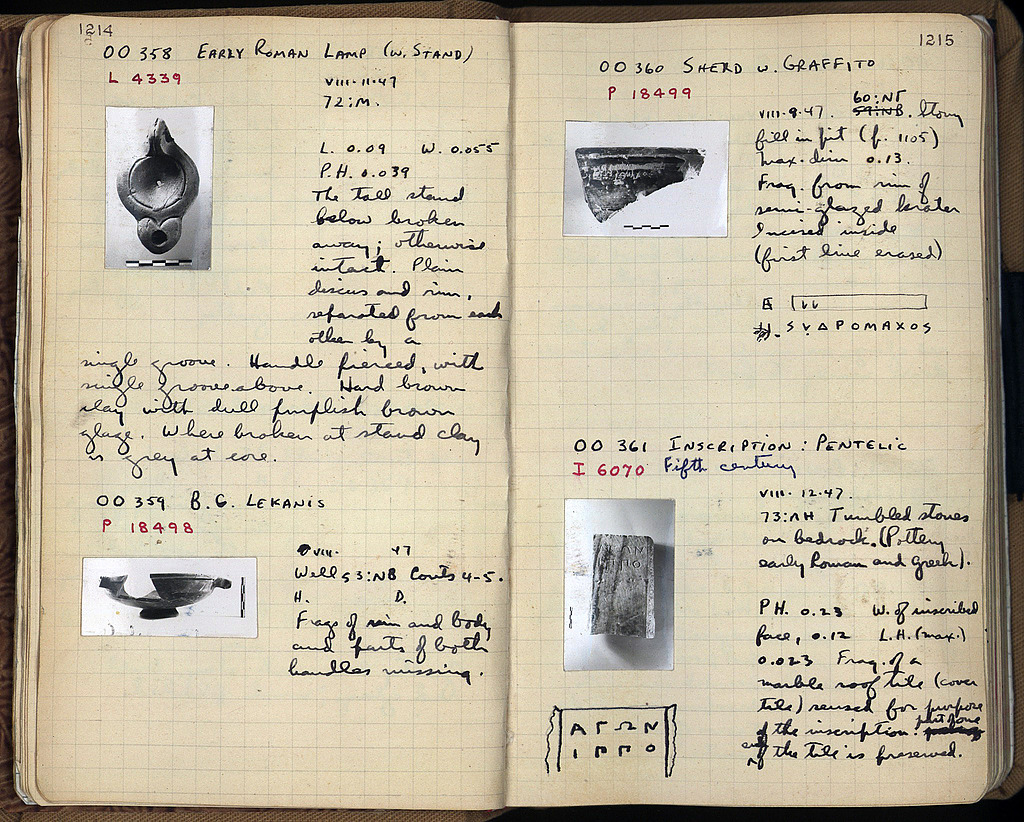 1214
OO 358 EARLY ROMAN LAMP (W. STAND)
L 4339
VIII-11-47
72:M.
L. 0.09 W. 0.055
P.H. 0.039
The tall stand
below broken
away; otherwise
intact. Plain
discus and rim,
separated from each
other by a
single groove. Handle pierced, with
single groove above. Hard brown
clay with dull purplish brown
glaze. Where broken at stand clay
is grey at core.
OO 359 B.G. LEKANIS
P 18498
VIII- 47
Well 53:NB Conts 4-5.
H. D.
Frags of rim and body
and parts of both
handles missing.
1215
OO 360 SHERD W. GRAFFITO
P 18499
60:NΓ
VIII-9-47. 59:NB. Stony
fill in pit (p. 1105)
Max. dim 0.13.
Frag. from rim of
semi-glazed krater
Incised inside
(first line erased)
SVΔPOMAXOS
OO 361 INSCRIPTION: PENTELIC
I 6070 Fifth century
VIII-12-47.
73:ΛH Tumbled stones
on bedrock. (Pottery
early Roman and Greek).
PH. 0.23 W. of inscribed
face, 0.12 L.H. (max.)
0.023 Frag. of a
marble roof tile (cover
tile) reused for purpose
of the inscription. part of one
end of the tile is preserved.
ΑΓΩΝ
ΙΠΠΟ